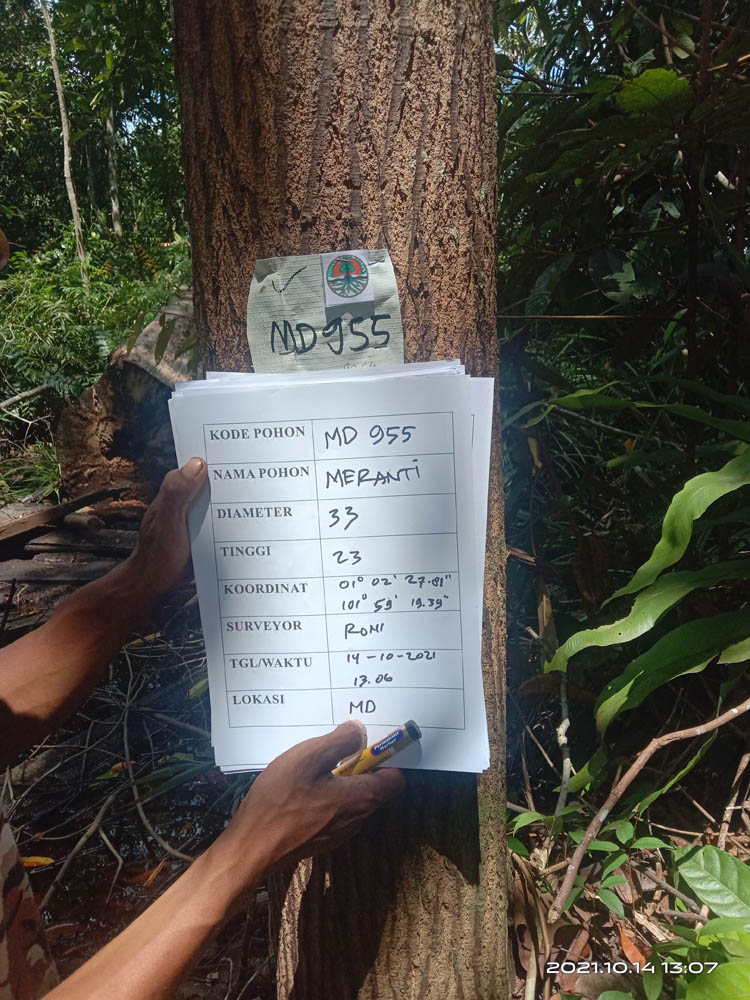 MD 955
KODE POHON MD 955
NAMA POHON MERANTI
DIAMETER 33
TINGGI 23
KOORDINAT 01° 02' 27.81"
101° 59' 19.39"
SURVEYOR RONI
TGL/WAKTU 14-10-2021
13.06
LOKASI MD
Permanent
Marker
2021.10.14 13:07